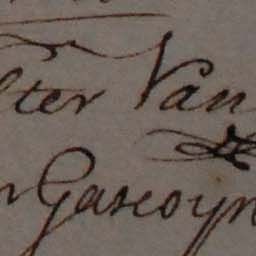 lter Van
r Gascoyn